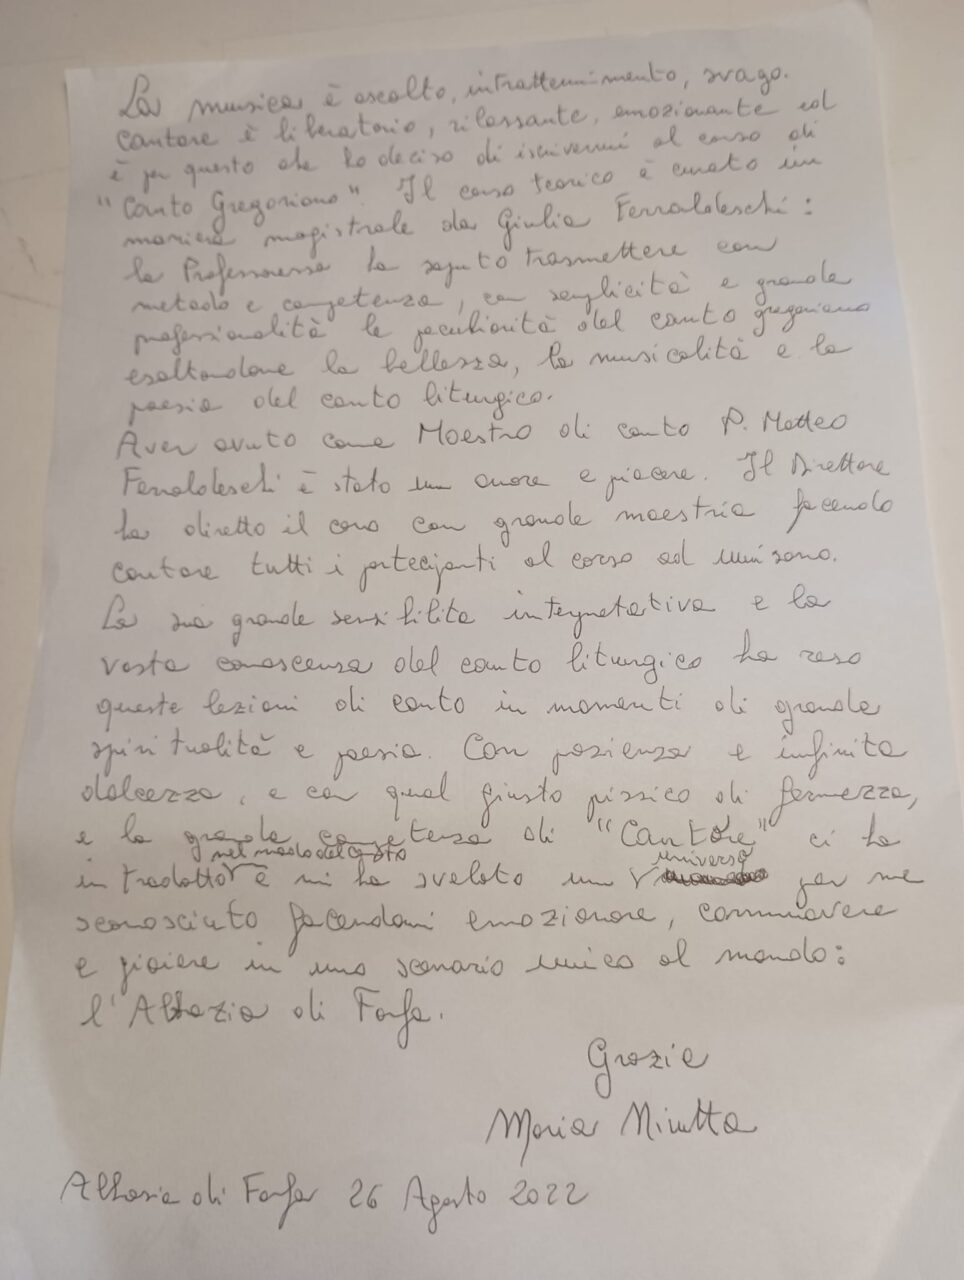 La musica è ascolto, intrattenimento, svago.
Cantare è liberatorio, rilassante, emozionante ed
è per questo che ho deciso di iscrivermi al corso di
"Canto Gregoriano". Il corso teorico è curato in
maniera magistrale da Giulia Ferraldeschi:
la Professoressa ha saputo trasmettere con
metodo e competenza, con semplicità e grande
professionalità le peculiarità del canto gregoriano
esaltandone la bellezza, la musicalità e la
poesia del canto liturgico.
Aver avuto come Maestro di canto P. Matteo
Ferraldeschi è stato un onore e piacere. Il Direttore
ha diretto il coro con grande maestria facendo
cantare tutti i partecipanti al corso ad unisono.
La sua grande sensibilita interpretativa e la
vasta conoscenza del canto liturgico ha reso
queste lezioni di canto in momenti di grande
spiritualità e poesia. Con pazienza e infinita
dolcezza, e con quel giusto pizzico di fermezza,
e la grande competenza di "Cantore" ci ha
introdotto nel modo del canto e mi ha svelato un universo per me
sconosciuto facendomi emozionare, commuovere
e gioire in uno scenario unico al mondo:
l'Abbazia di Farfa.
Grazie
Maria
Abbazia di Farfa 26 Agosto 2022